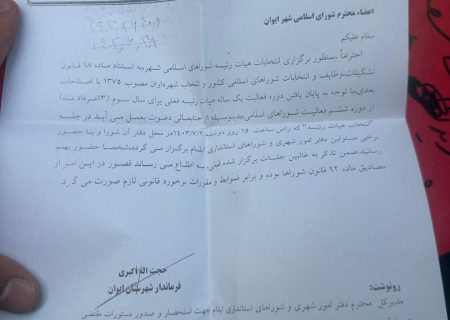 اعضاء محترم شورای اسلامی شهر ایوان
سلام علیکم
احتراماً،بمنظور برگزاری انتخابات هیات رئیسه شوراهای اسلامی شهر،به استناد ماده ۱۸ قانون
تشکیلات،وظایف و انتخابات شوراهای اسلامی کشور و انتخاب شهرداران مصوب ۱۳۷۵ با اصلاحات
بعدی،با توجه به پایان یافتن دوره فعالیت یک ساله هیات رئیسه فعلی برای سال سوم (۱۳مرداد ماه)
از دوره ششم فعالیت شوراهای اسلامی،بدینوسیله از جنابعالی دعوت بعمل می آید در جلسه
"انتخاب هیات رئیسه" که راس ساعت ۱۵ روز دوشنبه در محل دفتر آن شورا و با حضور
برخی مسئولین دفتر امور شهری و شوراهای استانداری ایلام برگزار می گردد،شخصا حضور بهم
رسانید.ضمن تذکر به غائبین جلسات برگزار شده قبلی به اطلاع می رساند قصور در این امر از
مصادیق ماده ۹۲ قانون شوراها بوده و برابر ضوابط و مقررات برخورد قانونی لازم صورت می گیرد.
حجت اله اکبری
فرماندار شهرستان ایوان
رونوشت:
مدیرکل محترم دفتر امور شهری و شوراهای استانداری ایلام جهت استحضار و صدور دستورات مقتضی